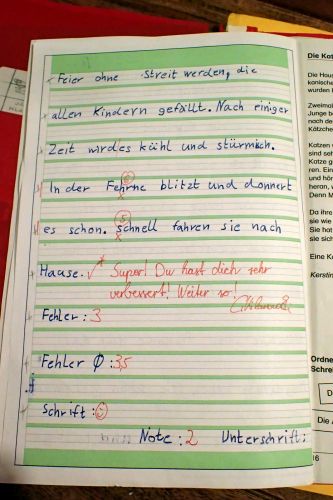 Feier ohne Streit werden, die
allen Kindern gefällt. Nach einiger
Zeit wird es kühl und stürmisch.
In der Fehrne blitzt und donnert
6
es schon. schnell fahren sie nach
S
Hause.
Super! Du hast dich sehr
verbessert! Weiter so!
Fehler: 3
Fehler Ø: 3,5
Schrift:
Note: 2 Unterschrift:
Die Kat
Die Hau
konische
wurden
Zweimal
Junge b
nach de
Kätzche
Katzen
sind seh
Katze g
ren. Ein
und hör
heran, w
Denn M
Da ihre
sie wie
Sie hat
sie sich
Eine Ko
Kerstin
Ordne
Schrei
Die A
16